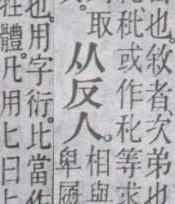 也。敘者次弟也
秕或作𥝓等求
取
从反人。相與
卑履
也。用字衍。比當作
體。凡用匕曰匕